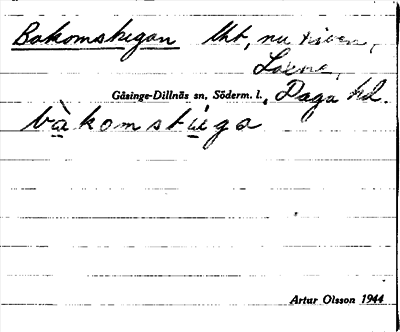 Bakomstugan lht, nu riven,
Laxne,
Gåsinge-Dillnäs sn, Söderm. l., Daga hd.
bàkomstúga
Artur Olsson 1944